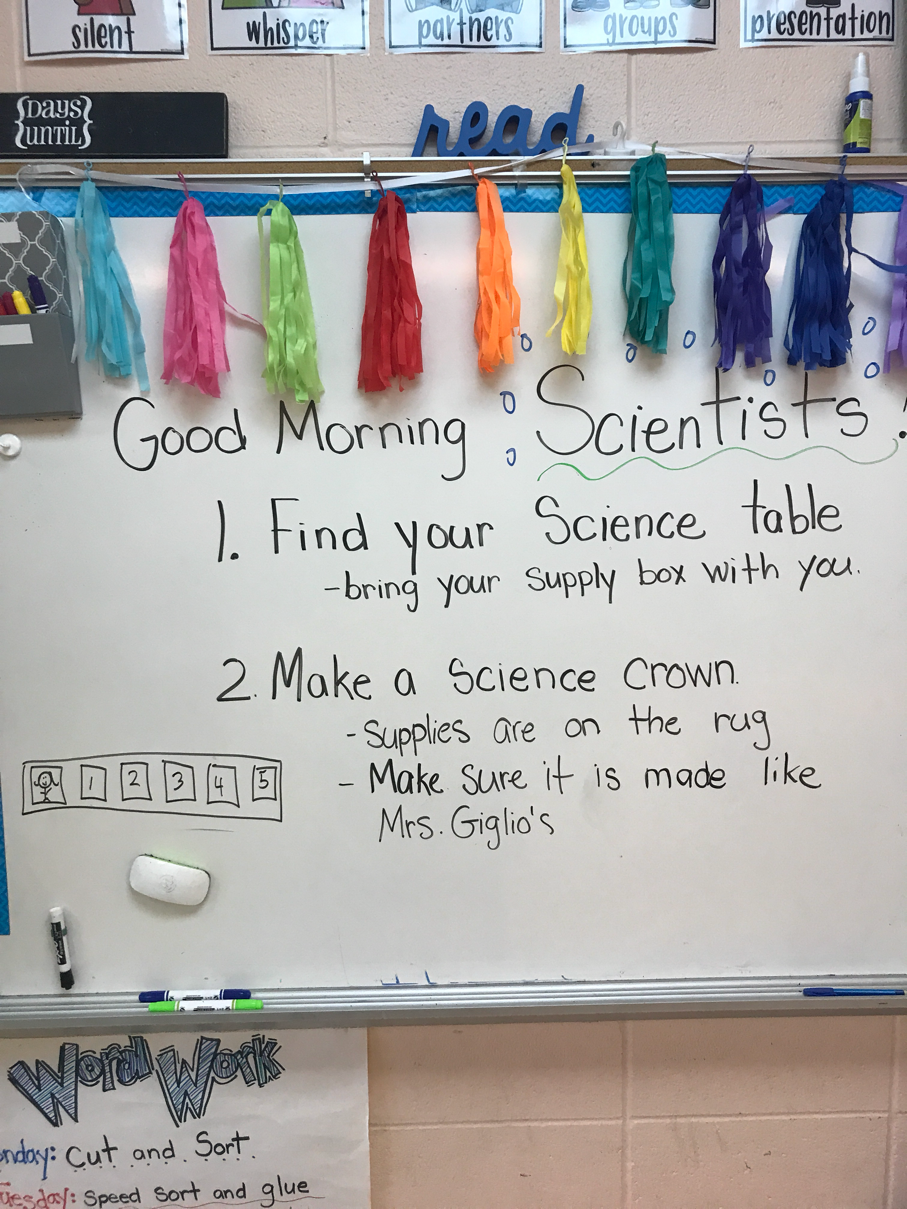 silent
whisper
partners
groups
presentation
{DAYS
{UNTIL}
read
Good Morning Scientists!
1. Find your Science table
-bring your supply box with you.
2. Make a Science Crown.
-Supplies are on the rug
- Make sure it is made like
Mrs. Giglio's
1 2 3 4 5
Word Work
onday: Cut and Sort.
uesday: Speed Sort and glue